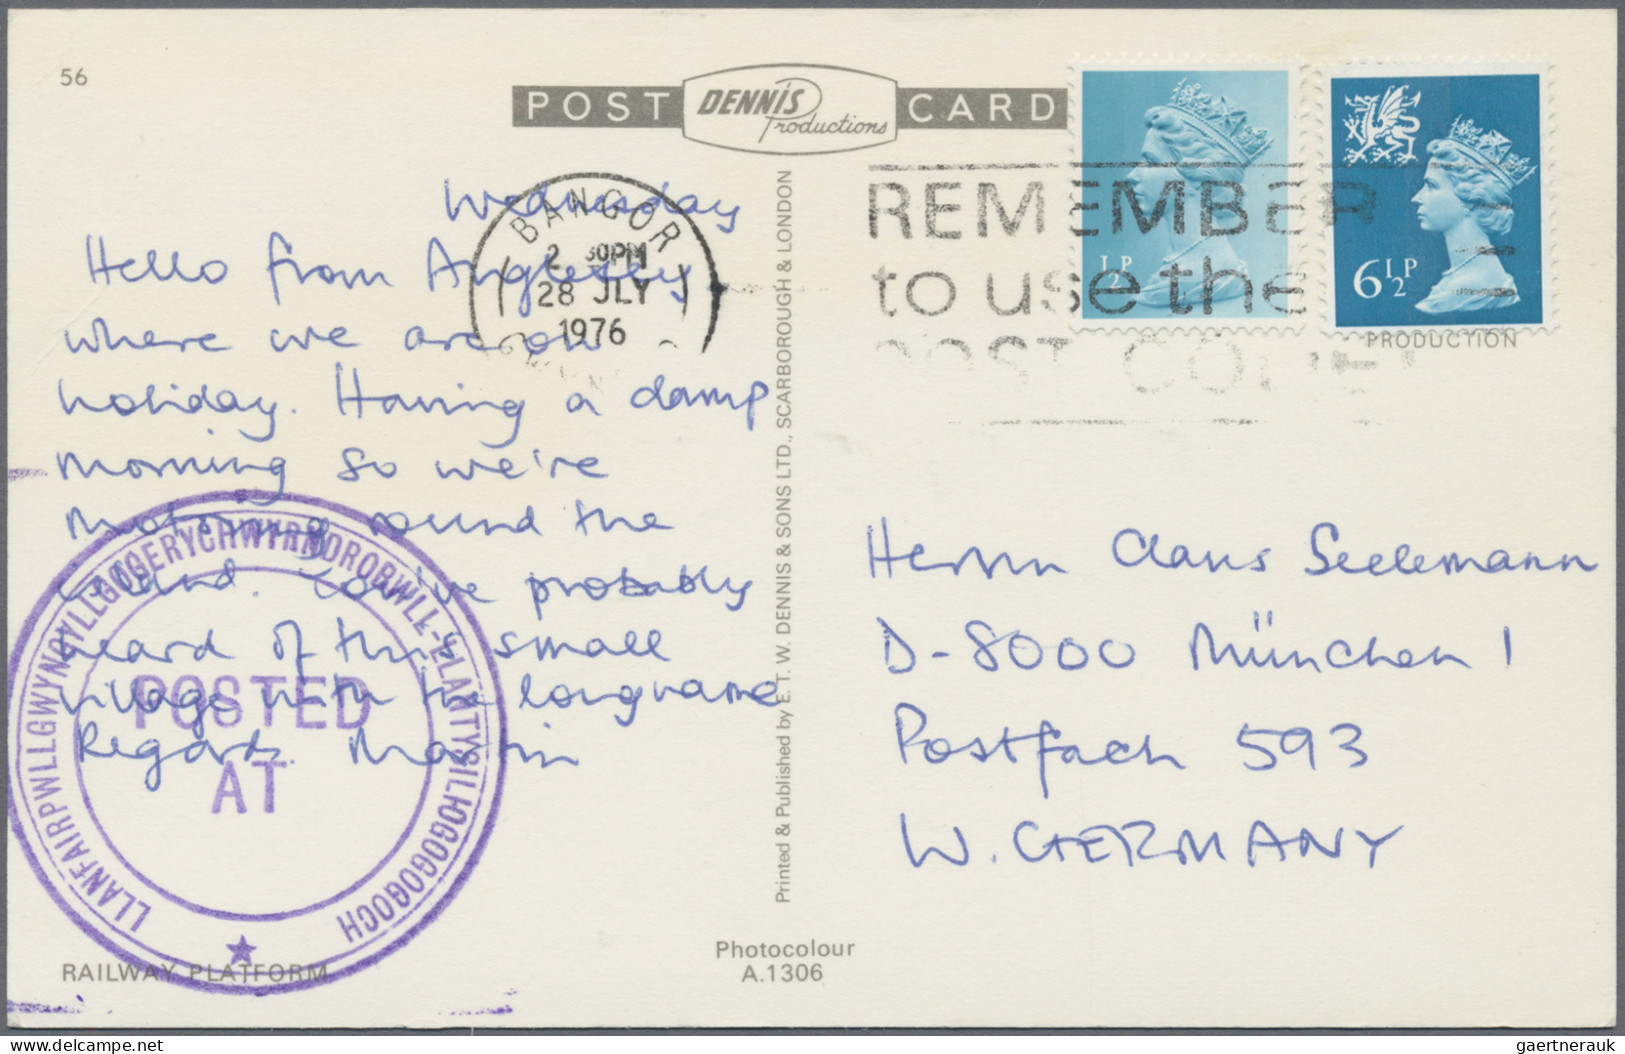 56
POST DENNIS Productions CARD
BANGOR
2 30PM
28 JLY
1976
REMEMBER
to use the
POST CODE
½P
6½P
PRODUCTION
Wednesday
Hello from Anglesey
where we are on
holiday. Having a damp
morning so we're
motoring round the
island. You've probably
heard of this small
village with the longname
Regards Martin
LLANFAIRPWLLGWYNGYLLGOGERYCHWYRNDROBWLL-LLANTYSILIOGOGOGOCH
POSTED
AT
RAILWAY PLATFORM
Printed & Published by E. T. W. DENNIS & SONS LTD., SCARBOROUGH & LONDON
Photocolour
A.1306
Herrn Claus Seelemann
D-8000 München 1
Postfach 593
W. GERMANY
delcampe.net
gaertnerauk